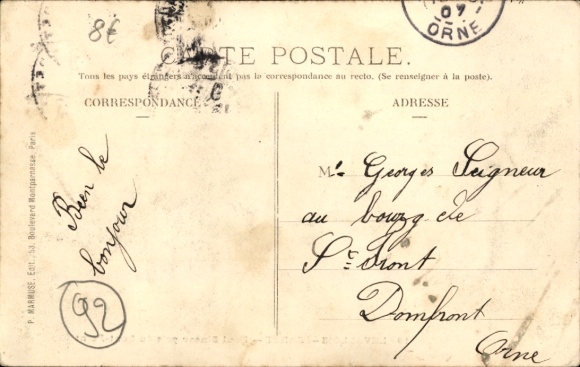 8€
07
ORNE
CARTE POSTALE.
Tous les pays étrangers n'acceptent pas la correspondance au recto. (Se renseigner à la poste).
CORRESPONDANCE
ADRESSE
P. MARMUSE, Édit., 53, Boulevard Montparnasse, Paris
Bien le
bonjour
92
Mr Georges Seigneur
au bourg de
St Front
Domfront
Orne